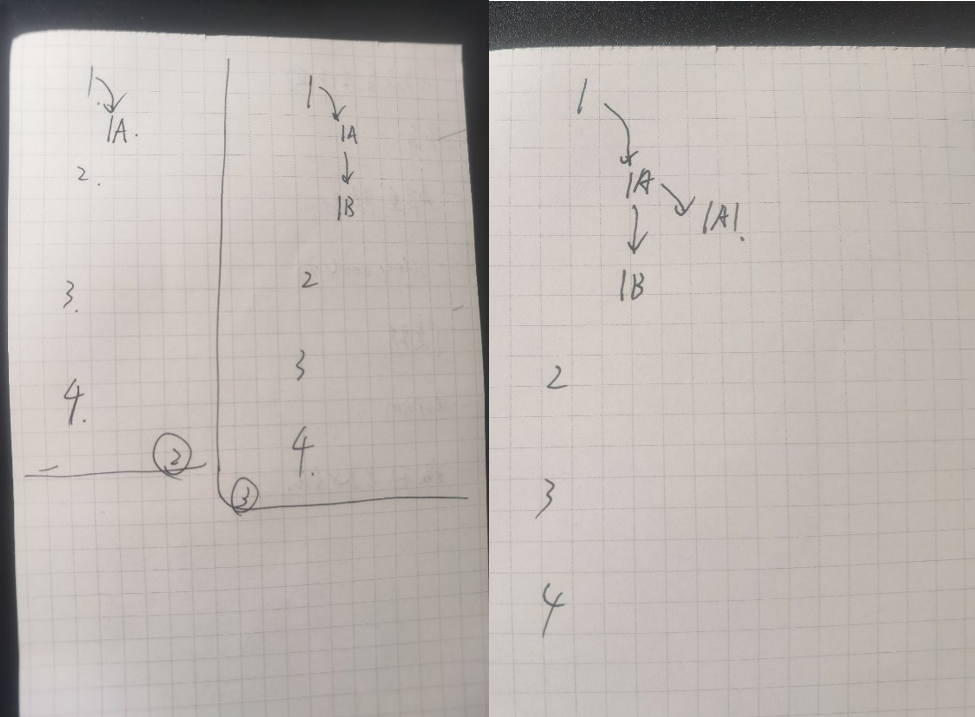 1.
1A.
2.
3.
4.
2
1
1A
1B
2
3
4.
3
1
1A
1A1.
1B
2
3
4